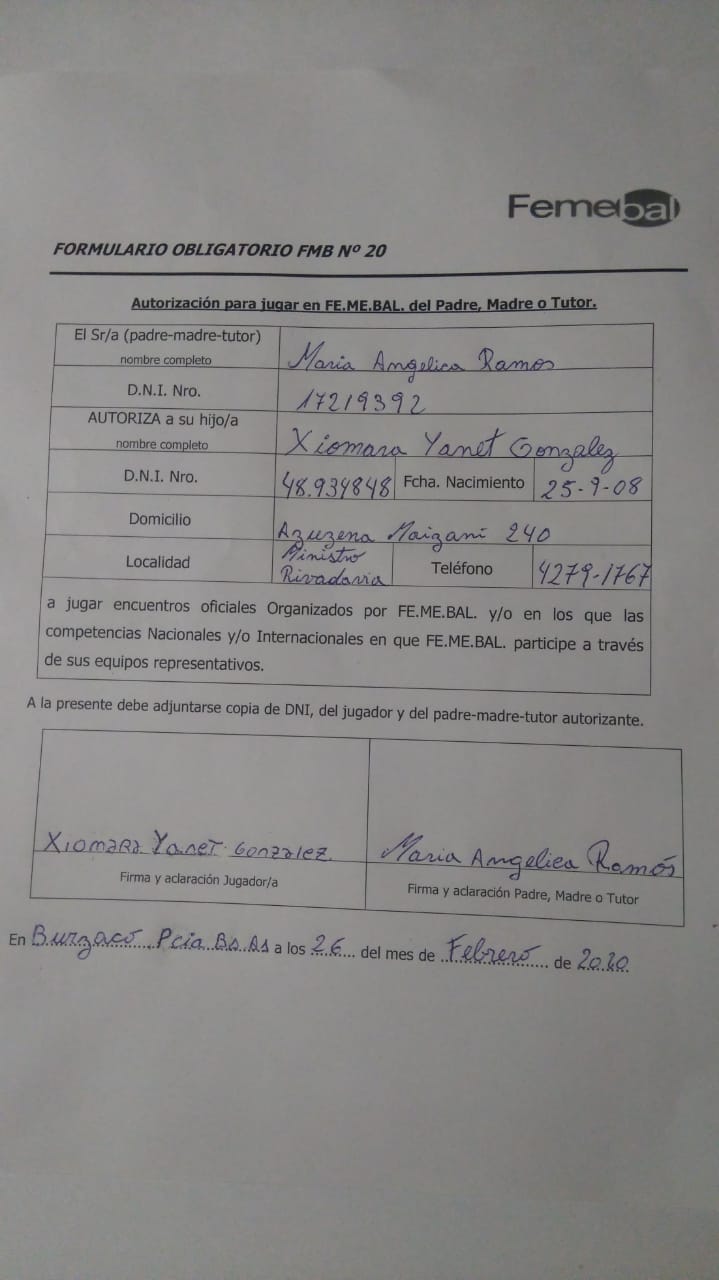 Femebal
FORMULARIO OBLIGATORIO FMB Nº 20
Autorización para jugar en FE.ME.BAL. del Padre, Madre o Tutor.
El Sr/a (padre-madre-tutor)
nombre completo
Maria Angelica Ramos
D.N.I. Nro.
17219392
AUTORIZA a su hijo/a
nombre completo
Xiomara Yanet Gonzalez
D.N.I. Nro.
48.934848
Fcha. Nacimiento
25-9-08
Domicilio
Azuzena Maizani 240
Localidad
Ministro
Rivadavia
Teléfono
4279-1767
a jugar encuentros oficiales Organizados por FE.ME.BAL. y/o en los que las
competencias Nacionales y/o Internacionales en que FE.ME.BAL. participe a través
de sus equipos representativos.
A la presente debe adjuntarse copia de DNI, del jugador y del padre-madre-tutor autorizante.
Xiomara Yanet Gonzalez
Firma y aclaración Jugador/a
Maria Angelica Ramos
Firma y aclaración Padre, Madre o Tutor
En Burzaco Pcia Bs As a los 26 del mes de Febrero de 2020